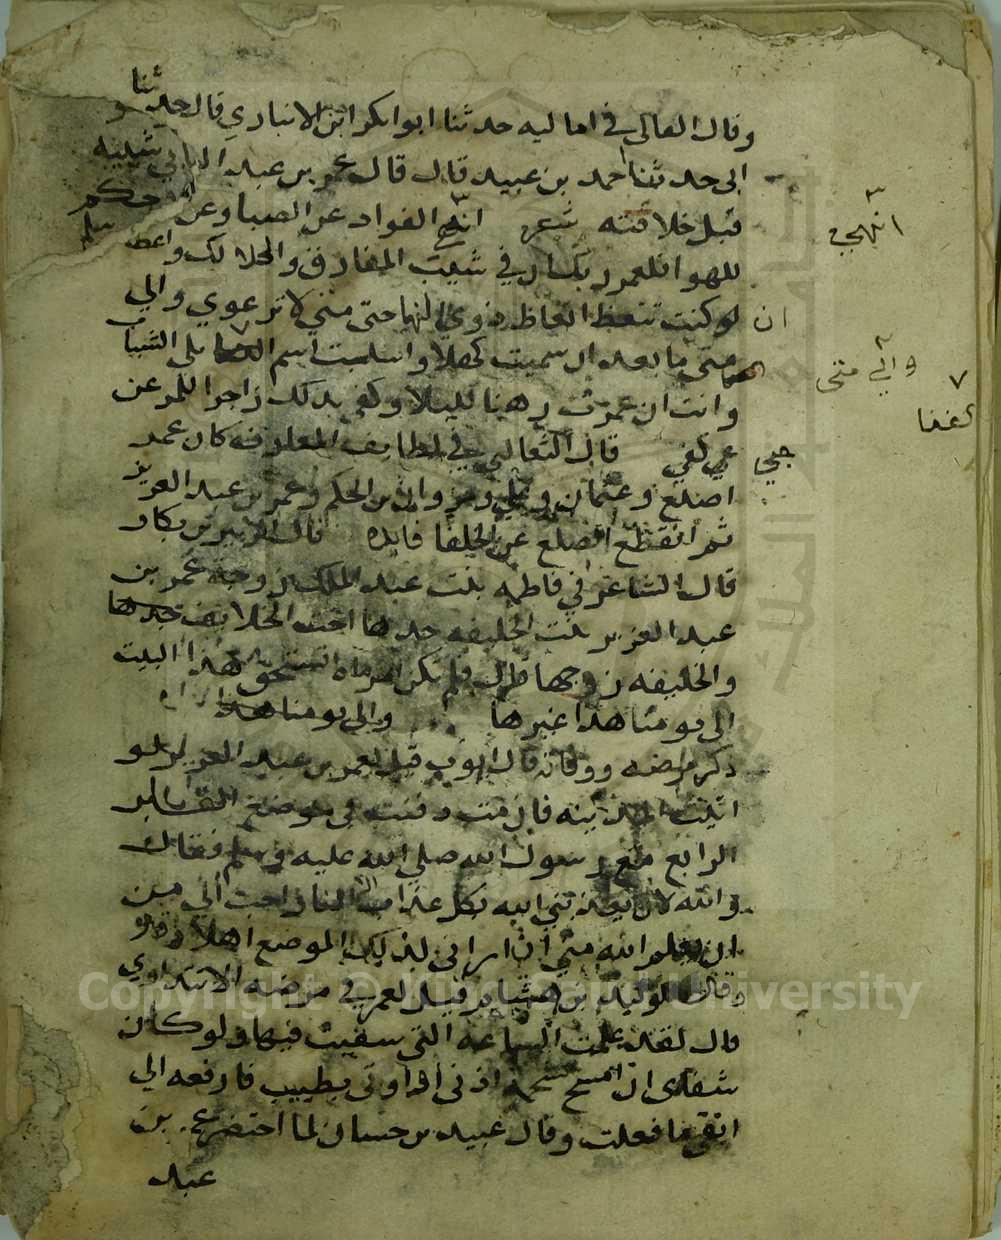 وقال القالي في اماليه حدثنا ابو بكر ابن الانباري قال حدثنا
ابي حدثنا احمد بن عبيد قال قال عمر بن عبد
قبل خلافته شعر انه الفواد عن الصبا وعن
للهوا فلعمر ربك ان في شيب المفارق والجلا لك واعظا
لو كنت تتعظ اتعاظ ذوي النها حتى متي لا ترعوي والي
متى ما بعد ان سميت كهلا واستلبت اسم الفتا بلى الشباب
وانت ان عمرت رهنا للبلا وكفى بذلك زاجرا للمر عن
غي كفي قال الثعالبي في لطايف المعارف كان عمر
اصلع وعثمان وعلي ومروان بن الحكم وعمر بن عبد العزيز
ثم انقطع الصلع عن الخلفا فايده قال الزبير بن بكار
قال الشاعر في فاطمه بنت عبد الملك زوجة عمر بن
عبد العزيز بنت الخليفه جدها اخت الخلايف جدها
والخليفه زوجها قال فلم تكن امراه تستحق هذا البيت
الى يومنا هذا غيرها والى يومنا هذا
ذكر مرضه ووفاته قال ايوب قيل لعمر بن عبد العزيز لو
اتيت المدينه فان مت دفنت في موضع القبر
الرابع مع رسول الله صلى الله عليه وسلم فقال
والله لان يعذبني الله بكل عذاب الا النار احب الي من
ان يعلم الله مني ان اراني لذلك الموضع اهلا
وقال الوليد بن هشام قيل لعمر في مرضه الا تتداوي
قال لقد علمت الساعه التي سقيت فيها ولو كان
شفاى ان امسح شحمة اذني او اوتى بطيب فارفعه الي
انفي ما فعلت وقال عبيد بن حسان لما احتضر عمر بن
عبد
انهي
ان
والي متى
جي
Copyright © King Saud University
جامعة الملك سعود